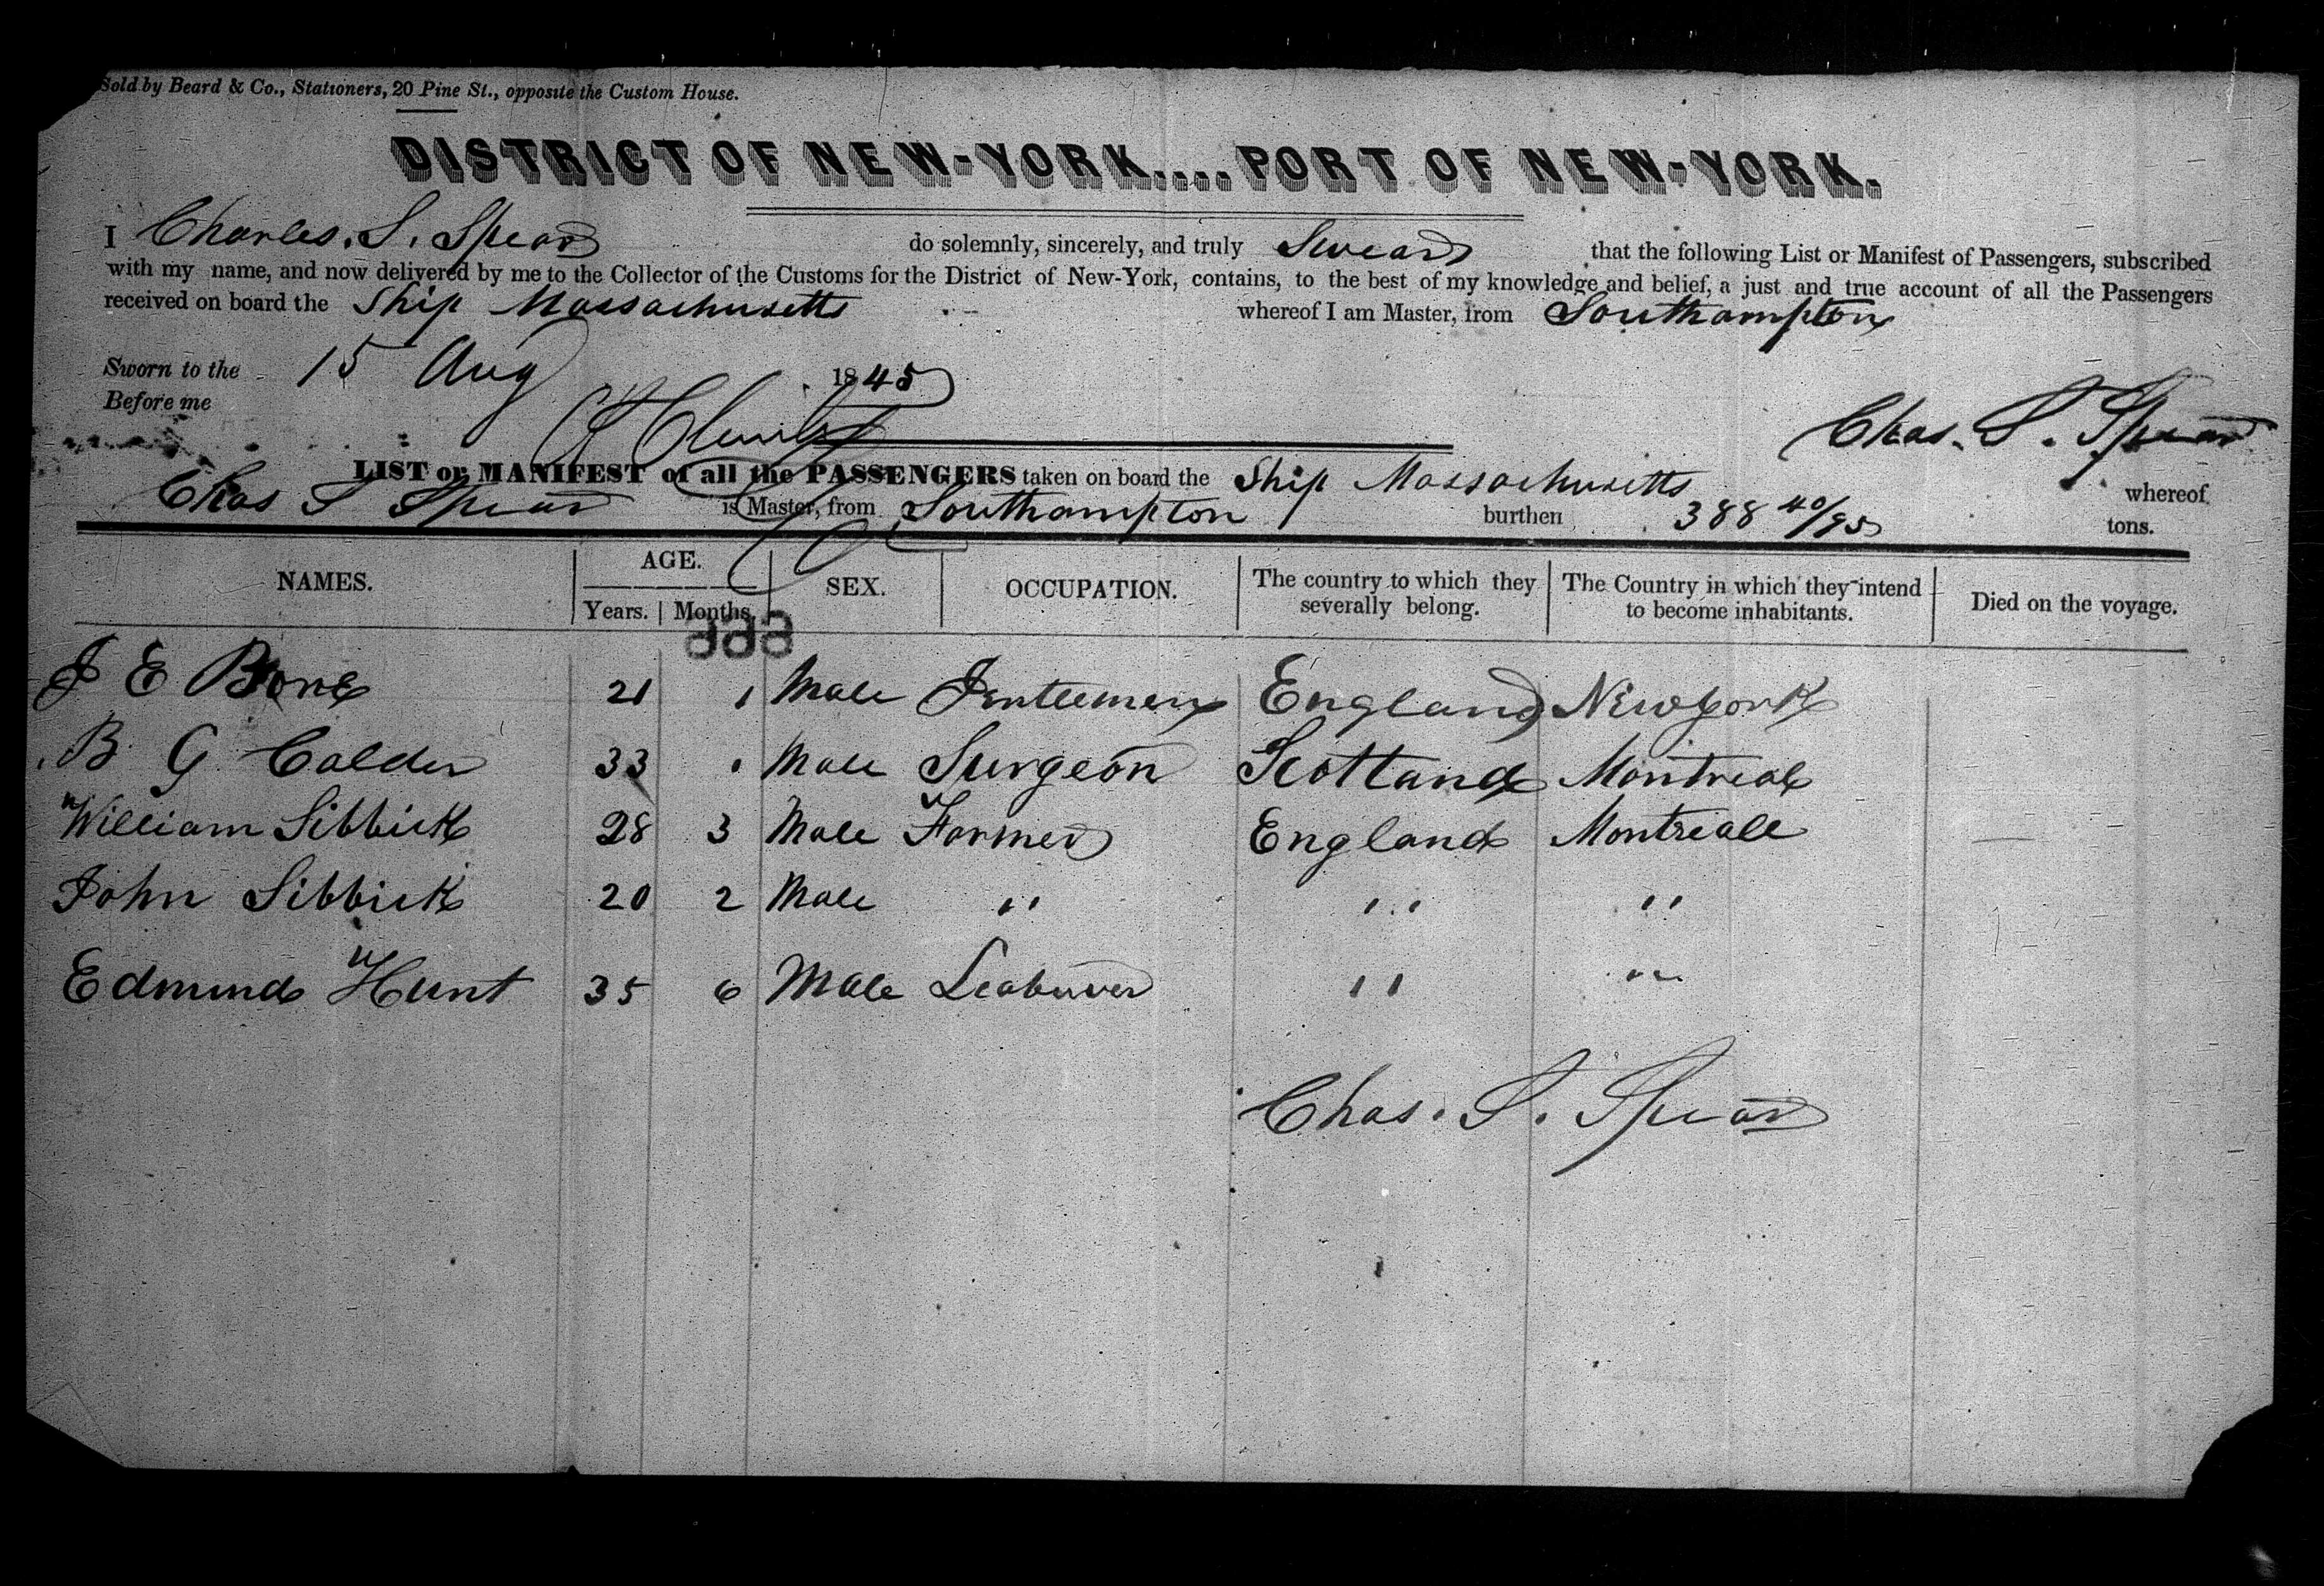 Sold by Beard & Co., Stationers, 20 Pine St., opposite the Custom House.
DISTRICT OF NEW-YORK....PORT OF NEW-YORK.
I Charles. S. Spear do solemnly, sincerely, and truly Swear that the following List or Manifest of Passengers, subscribed
with my name, and now delivered by me to the Collector of the Customs for the District of New-York, contains, to the best of my knowledge and belief, a just and true account of all the Passengers
received on board the Ship Massachusetts whereof I am Master, from Southampton
Sworn to the 15 Aug 1845
Before me
Chas. S. Spear
LIST or MANIFEST of all the PASSENGERS taken on board the Ship Massachusetts whereof
Chas S Spear is Master, from Southampton burthen 388 40/95 tons.
NAMES. AGE. Years. Months. SEX. OCCUPATION. The country to which they severally belong. The Country in which they intend to become inhabitants. Died on the voyage.
999
J E Bone 21 1 Male Gentlemen England Newyork
B G Calder 33 Male Surgeon Scotland Montreal
William Sibbick 28 3 Male Farmer England Montreall
John Sibbick 20 2 Male " " "
Edmund Hunt 35 6 Male Leabuver " "
Chas. S. Spear